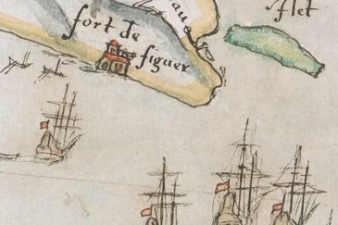 Flet
fort de
figuer